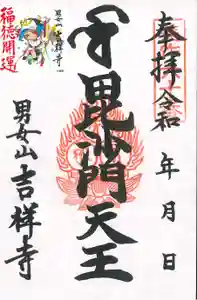 奉拝 令和 年 月 日
毘沙門天王
男女山 吉祥寺
福徳開運
男女山 吉祥寺